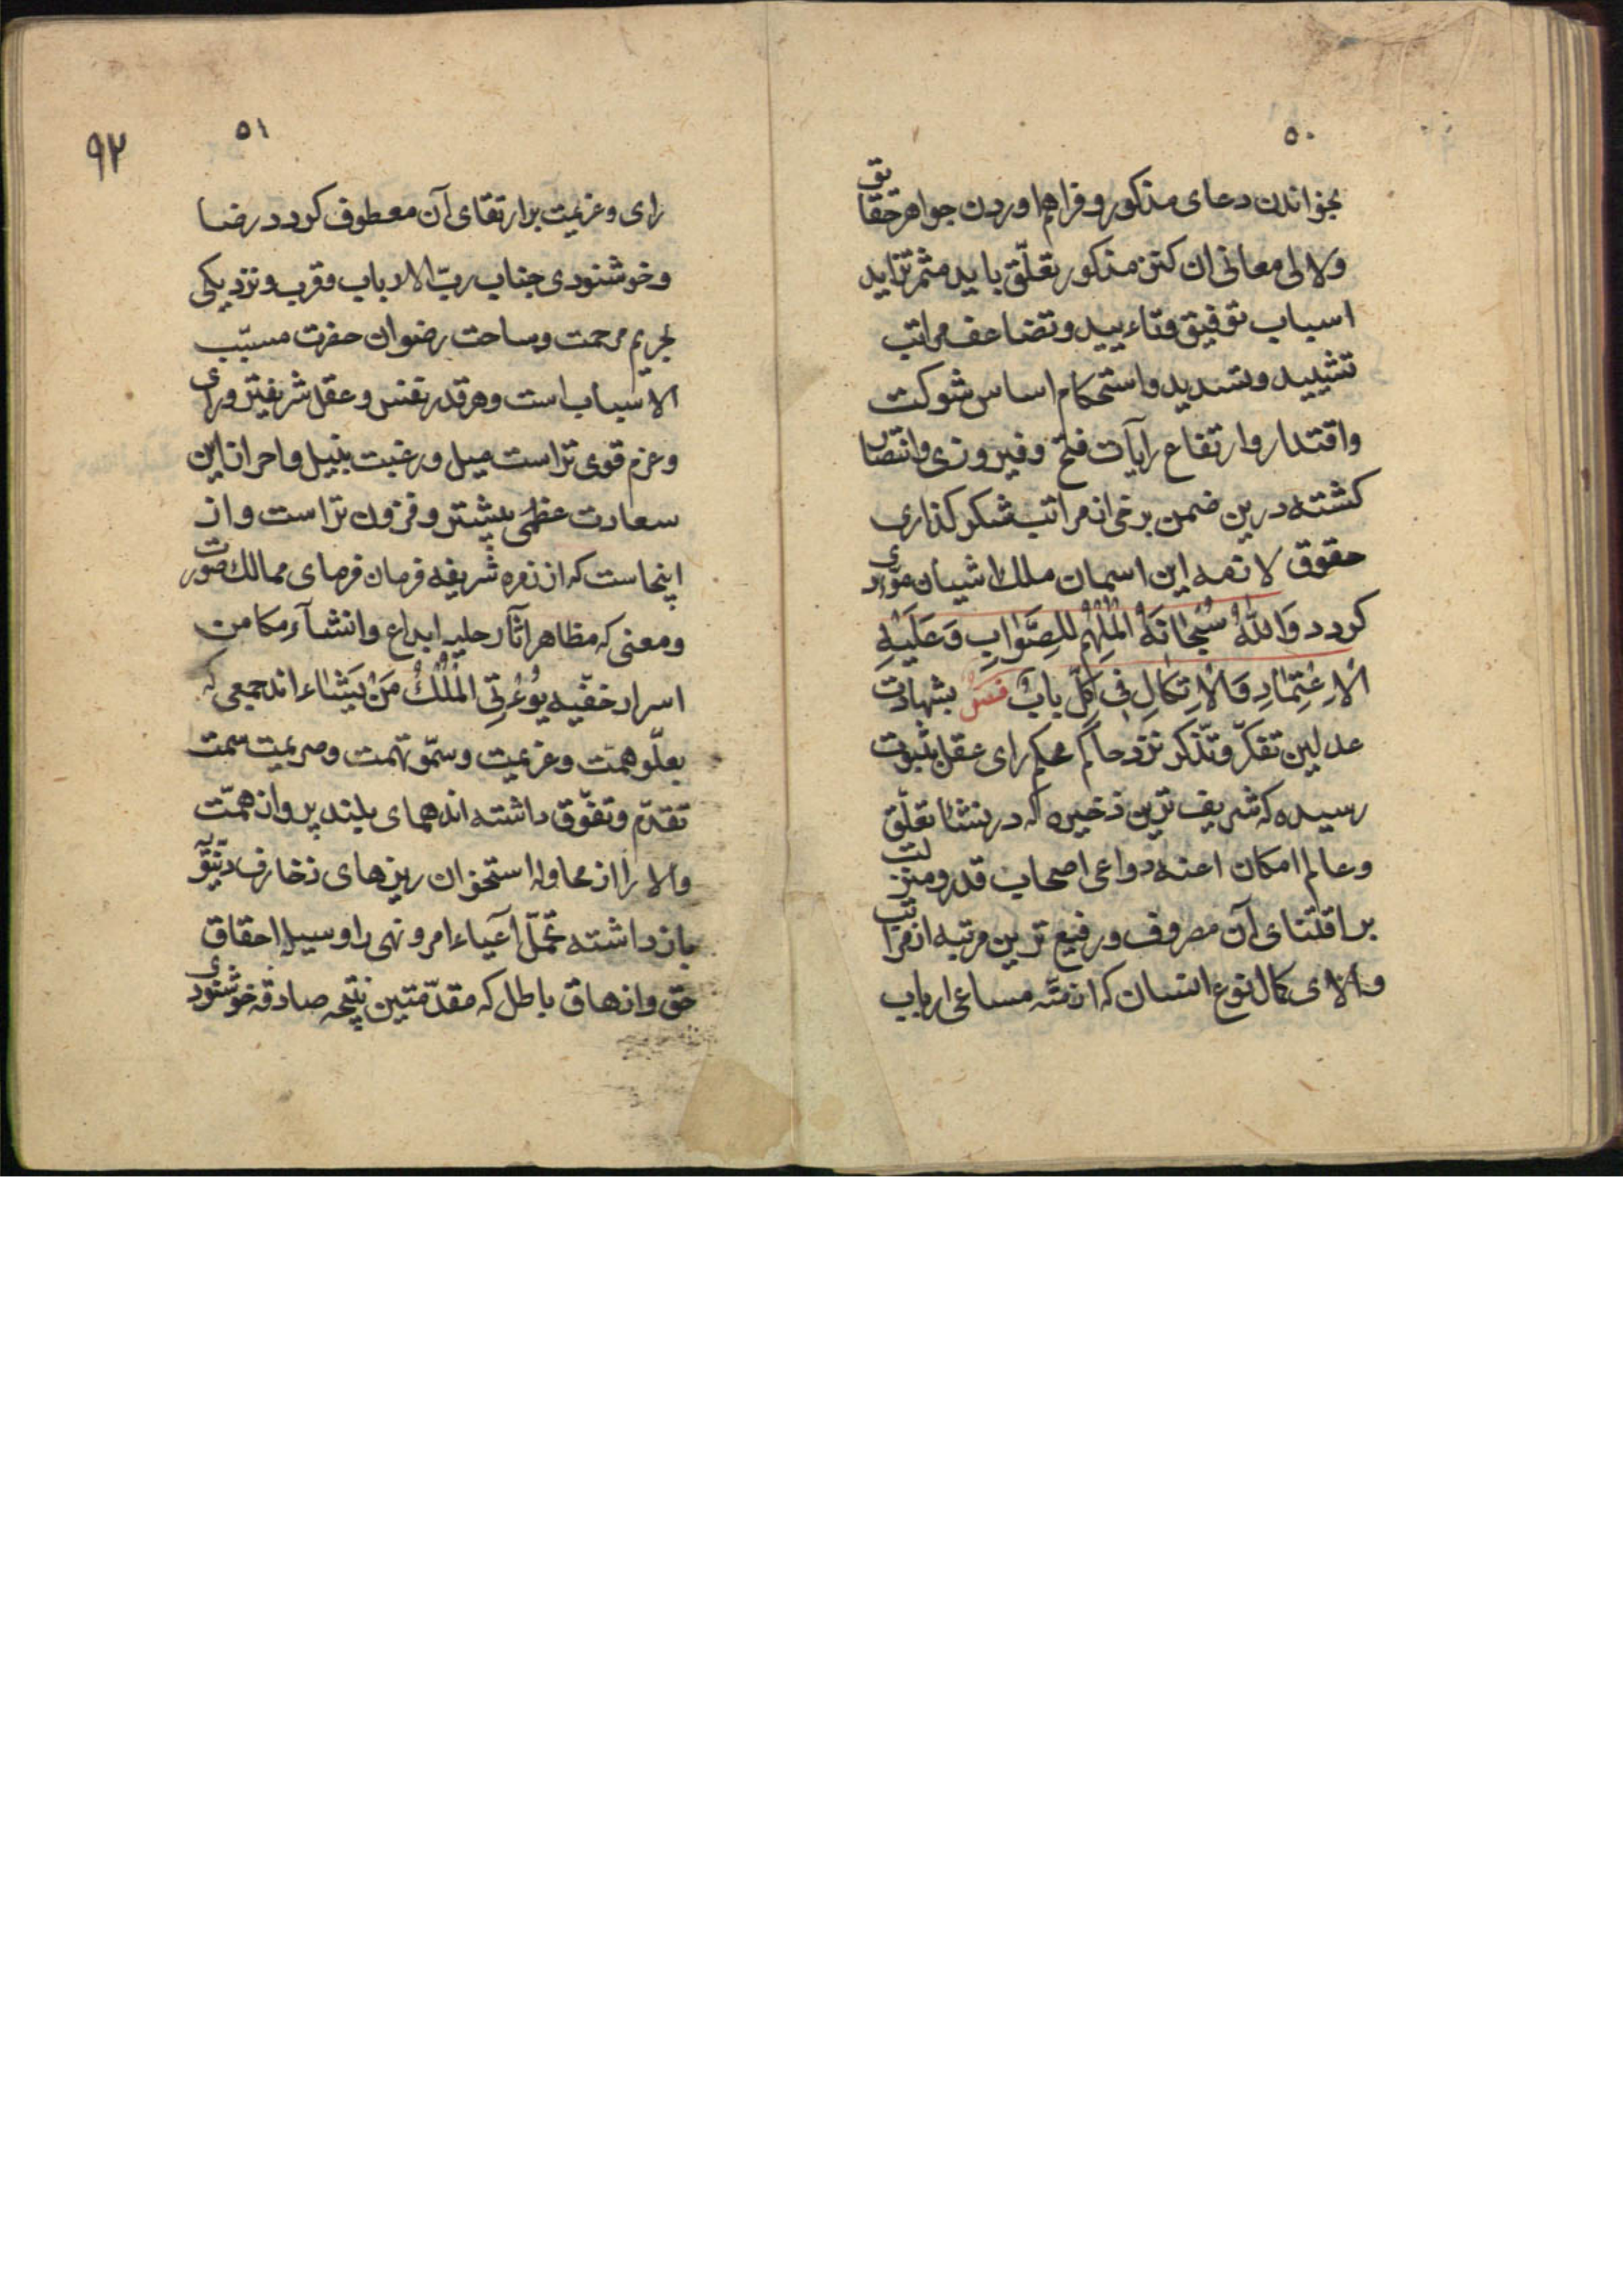 ۵۰
بخواندن دعای مذکور و فراهم اوردن جواهر حقایق
ولالی معانی ان کنز مذکور تعلّق یابد مثمر تزاید
اسباب توفیق وتاءیید و تضاعف مراتب
تشیید و تسدید واستحکام اساس شوکت
واقتدار وارتفاع رایآت فتح و فیروزی وانتصار
کشته درین ضمن برخی از مراتب شکر کذاری
حقوق لازمه این اسمان ملک اشیان مودّی
کردد وَاللهُ سُبْحٰانَهُ الْمُلْهِمُ لِلصَّوٰابِ وَعَلَیْهِ
الْاِعْتِمٰادِ وَالْاِتکٰالِ فِی کُلِّ بابٍ فَسَنْ بشهادت
عدلین تفکّر و تذّکر نزد حاکم محکم رای عقل بثبوت
رسیده که شریف ترین ذخیره که در نشئا تعلّق
وعالم امکان اعنه دواعی اصحاب قدر ومنزلت
بر اقتنای آن مصروف و رفیع ترین مرتبه از مراتب
والای کمال نوع انسان که از مّنه مساعی ارباب
۵۱
۹۲
رای و عزیمت بر ارتقای آن معطوف کردد رضا
و خوشنودی جناب ربّ الارباب و قرب و نزدیکی
بحریم مرحمت وساحت رضوان حضرت مسبّب
الاسباب است و هر قدر نفس و عقل شریفتر و رای
وعزم قوی تر است میل و رغبت بنیل واحراز این
سعادت عظمی بیشتر و فزون تر است و از
اینجاست که از زمره شریفه فرمان فرمای ممالک صورت
و معنی که مظاهر آثار جلیه ابداع وانشآء و مکامن
اسرار خفیّه یُوءْتِی الْمُلْکُ مَنْ یَشٰاء اند جمعی که
بعلّو همّت و عزیمت و سمّو نهمت و صریمت سمت
تقدّم و تفّوق داشته اند همای بلند پرواز همّت
والا را از محاوله استخوان ریزهای زخارف دنیّویّه
باز داشته تحمّل آعیاء امر و نهی را وسیله احقاق
حّق و ازهاق باطل که مقدّمتین نتیجه صادقه خوشنودی